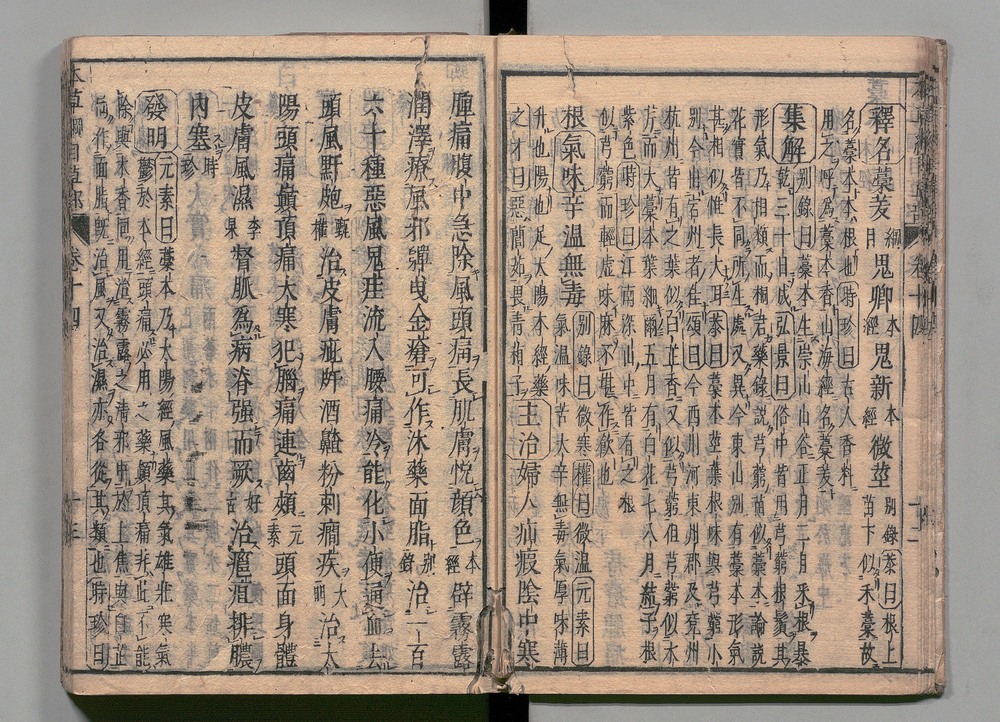 釋名藁茇綱目鬼卿本經鬼新本經微莖別錄恭曰根上苗下似禾藁故
名藁本本根也時珍曰古人香料
用之呼爲藁本香山海經名藁茇
集解別錄曰藁本生崇山山谷正月二月采根暴
乾三十日成弘景曰俗中皆用芎藭根鬚其
形氣乃相類而桐君藥錄說芎藭苗似藁本論說
花實皆不同所生處又異今東山別有藁本形氣
甚相似惟長大耳恭曰藁本莖葉根味與芎藭小
別今出宕州者佳頌曰今西川河東州郡及兗州
杭州皆有之葉似白芷香又似芎藭但芎藭似水
芹而大藁本葉細爾五月有白花七八月結子根
紫色時珍曰江南深山中皆有之根
似芎藭而輕虛味麻不堪作飲也
根氣味辛溫無毒別錄曰微寒權曰微溫元素曰氣溫味苦大辛無毒氣厚味薄
升也陽也足太陽本經藥
之才曰惡䕡茹畏青葙子主治婦人疝瘕陰中寒
腫痛腹中急除風頭痛長肌膚悅顏色本經辟霧露
潤澤療風邪軃曳金瘡可作沐藥面脂別錄治一百
六十種惡風鬼疰流入腰痛冷能化小便通血去
頭風䵟皰甄權治皮膚疵皯酒齄粉刺癎疾大明治太
陽頭痛巔頂痛大寒犯腦痛連齒頰元素頭面身體
皮膚風濕李杲督脈爲病脊強而厥好古治癰疽排膿
內塞時珍
發明元素曰藁本乃太陽經風藥其氣雄壯寒氣
鬱於本經頭痛必用之藥巔頂痛非此不能
除與木香同用治霧露之清邪中於上焦與白芷
同作面脂既治風又治濕亦各從其類也時珍曰
本草綱目草部 卷十四 十三